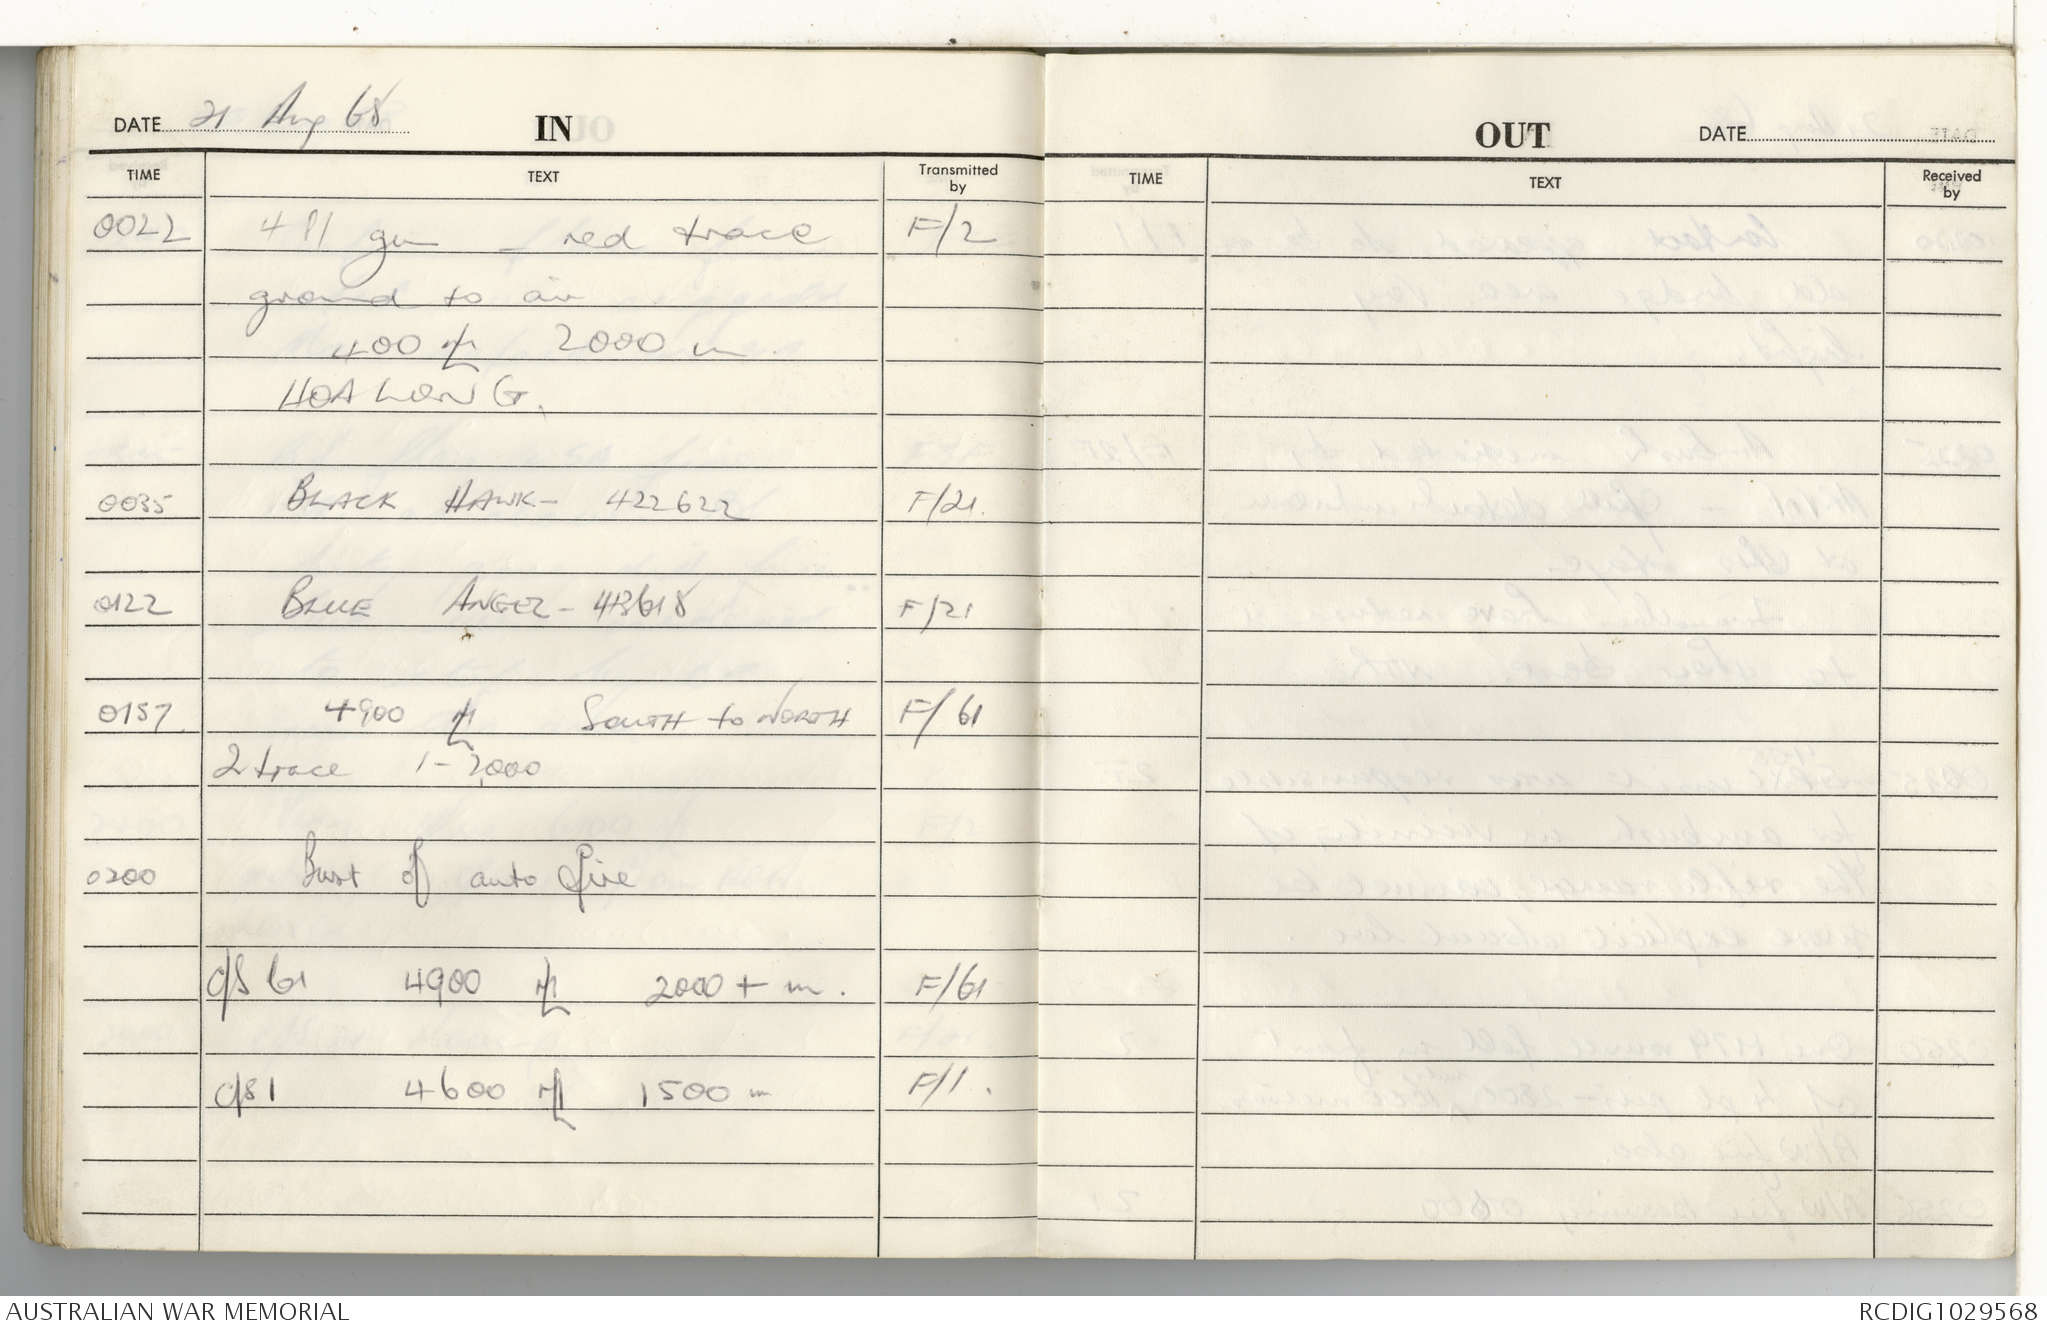 DATE 21 Aug 68 IN
TIME TEXT Transmitted by
0022 gun red trace F/2
ground to air
400 2000 m
HOA LONG.
0035 BLACK HAWK - 422622 F/21.
0122 BLUE ANGEL - 413618 F/21
0157. 4900 SOUTH to NORTH F/61
2 trace 1-2000
0200 Burst of auto fire
c/s 61 4900 2000 + m. F/61
c/s 1 4600 1500 m F/1.
OUT DATE
TIME TEXT Received by
AUSTRALIAN WAR MEMORIAL
RCDIG1029568